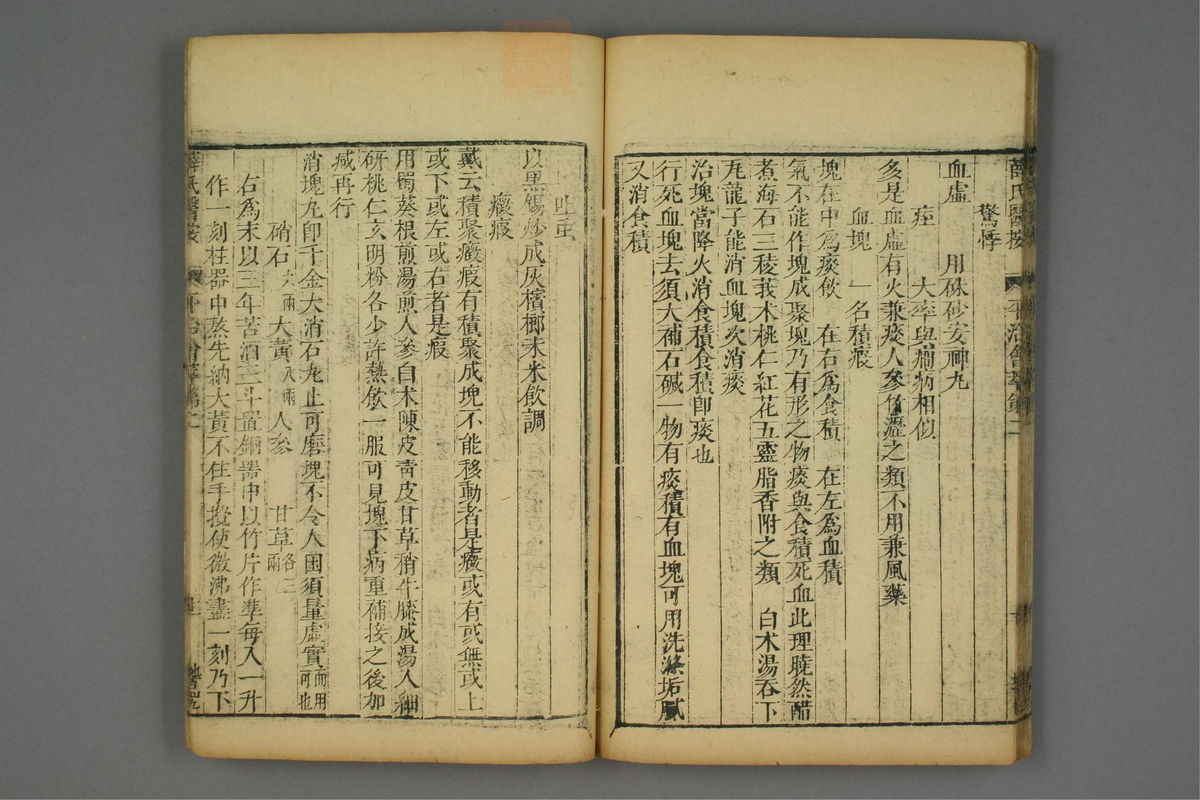 薛氏醫按 平治會萃卷二
驚悸
血虛 用硃砂安神丸
痓 大率與癇病相似
多是血虛有火兼痰人參竹瀝之類不用兼風藥
血塊 一名積瘕
塊在中爲痰飲 在右爲食積 在左爲血積
氣不能作塊成聚塊乃有形之物痰與食積死血此理曉然醋
煮海石三稜莪朮桃仁紅花五靈脂香附之類 白朮湯吞下
瓦龍子能消血塊次消痰
治塊當降火消食積食積即痰也
行死血塊去須大補石碱一物有痰積有血塊可用洗滌垢膩
又消食積
吐䖝
以黑錫炒成灰檳榔末米飲調
癥瘕
戴云積聚癥瘕有積聚成塊不能移動者是癥或有或無或上
或下或左或右者是瘕
用蜀葵根煎湯煎人參白朮陳皮青皮甘草稍牛膝成湯入細
研桃仁玄明粉各少許熱飲一服可見塊下病重補接之後加
減再行
消塊丸即千金大消石丸止可磨塊不令人困須量虛實而用可也
硝石六兩 大黃八兩 人參 甘草各三兩
右爲末以三年苦酒三斗置銅器中以竹片作準每入一升
作一刻柱器中熬先納大黃不住手攪使微沸盡一刻乃下
薛氏醫按